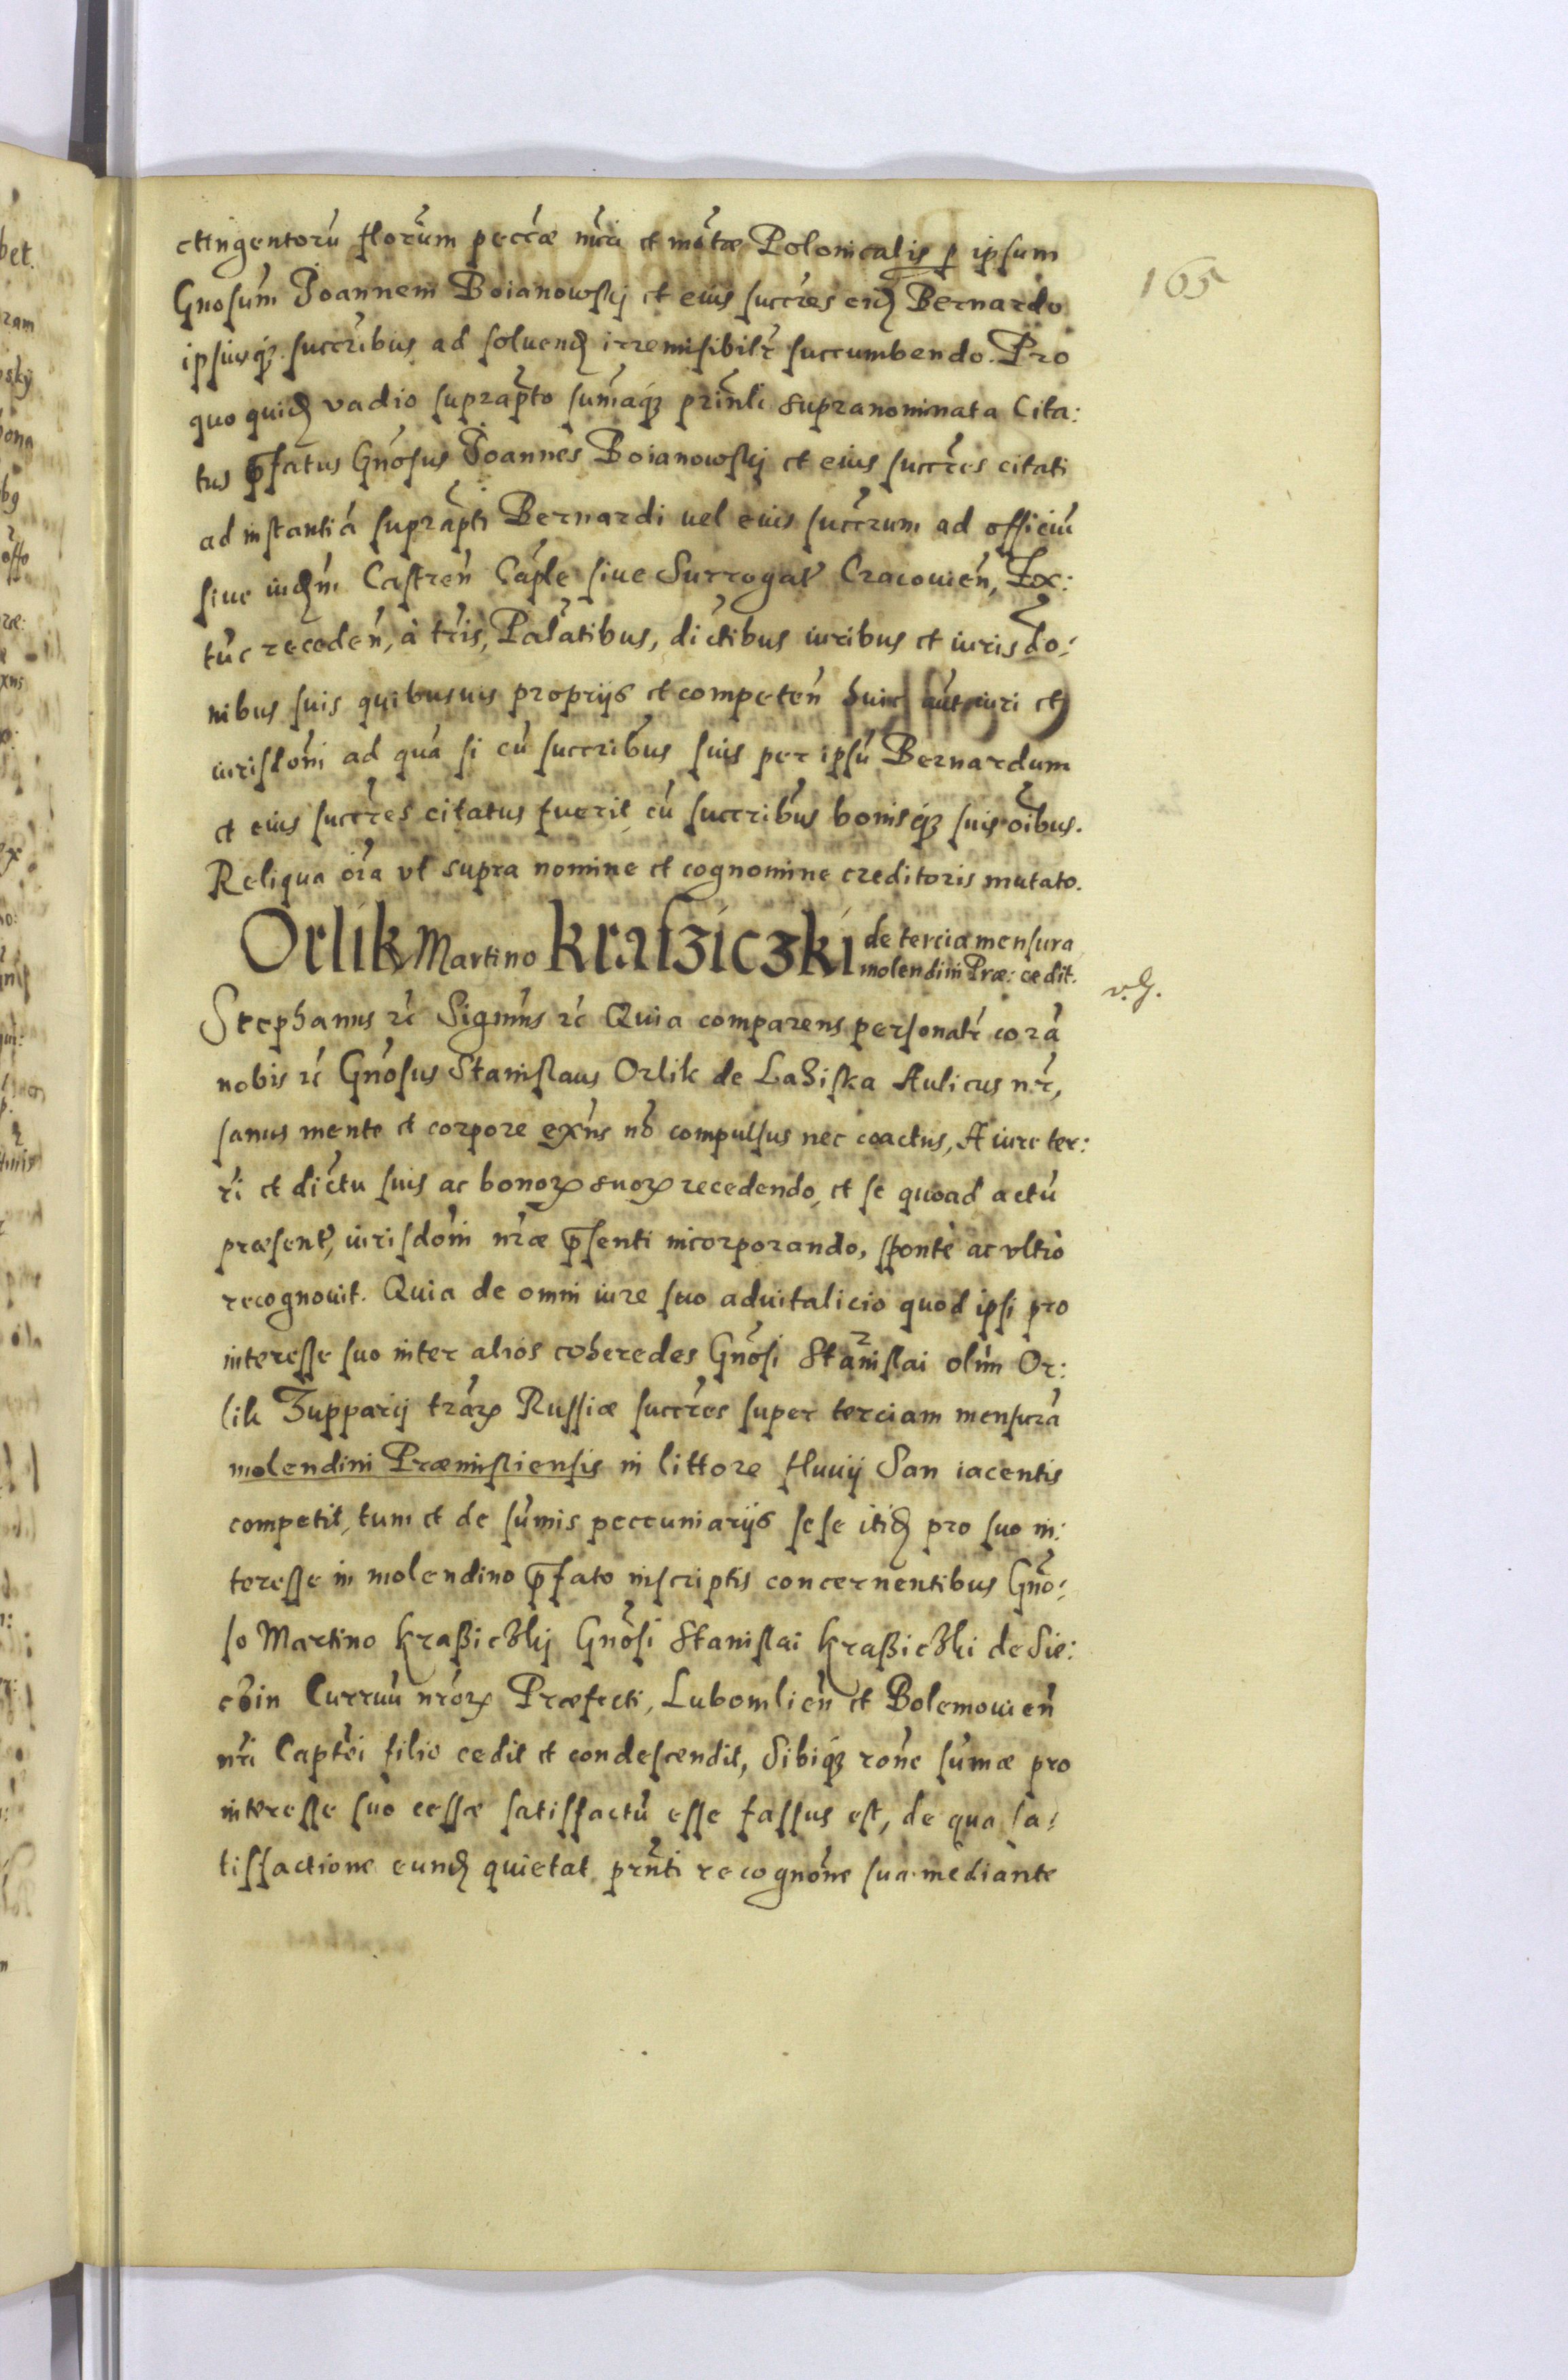 ctingentorū florum peccæ nūri et mōtæ Polonicalis ꝑ ipsum
165
Gnosum Joannem Boianowskj et eius succres eidꝫ Bernardo
ipsiusqꝫ succribus ad soluendꝫ irremisibilr succumbendo. Pro
quo quidꝫ vadio suprapto sum̄aqꝫ prinli supranominata Cita:
tus p̄fatus Gnosus Joannes Boianowskj et eius succres citati
ad instantiā suprapti Bernardi uel eius succrum ad officiū
siue iudꝫm Castren̄ Caple siue Surrogat Cracouien̄, Ex:
tūc receden̄, à tris, Palatibus, dictibus iuribus et iurisdo:
nibus suis quibusuis proprijs et competen̄ huic aut iuri et
iurisdoni ad quā si cū succribus suis per ipsū Bernardum
et eius succres citatus fuerit cū succribus bonisqꝫ suis oībus.
Reliqua oīa vt supra nomine et cognomine creditoris mutato.
Orlik Martino Krasziczki de tercia mensura
molendini Præ: cedit.
v. g.
Stephanus rc̄ Signm̄s rc̄ Quia comparens personalr corā
nobis rc̄ Gnosus Stanislaus Orlik de Laziska Aulicus nr̄,
sanus mente et corpore exn̄s nō compulsus nec coactus, A iure ter:
ri et dictu suis ac bonoꝝ suoꝝ recedendo, et se quoad actū
præsent, iurisdoni nr̄æ p̄senti incorporando, sponte ac vltrò
recognouit. Quia de omni iure suo aduitalicio quod ipsi pro
interesse suo inter alios coheredes Gnosi Stanislai olim Or:
lik Zupparij trāꝝ Russiæ succres super terciam mensurā
molendini Præmisliensis in littore fluuij San iacentis
competit, tum et de sum̄is peccuniarijs sese itidꝫ pro suo in:
teresse in molendino p̄fato inscriptis concernentibus Gno:
so Martino Kraßiczkj Gnosi Stanislai Kraßiczki de Sie:
czin Curruū nr̄oꝝ Præfecti, Lubomlien̄ et Bolemouien̄
nr̄i Captei filio cedit et condescendit, Sibiqꝫ rone sum̄æ pro
interesse suo cessæ satisfactū esse fassus est, de qua sa:
tisfactione eundꝫ quietat prnti recognone sua mediante